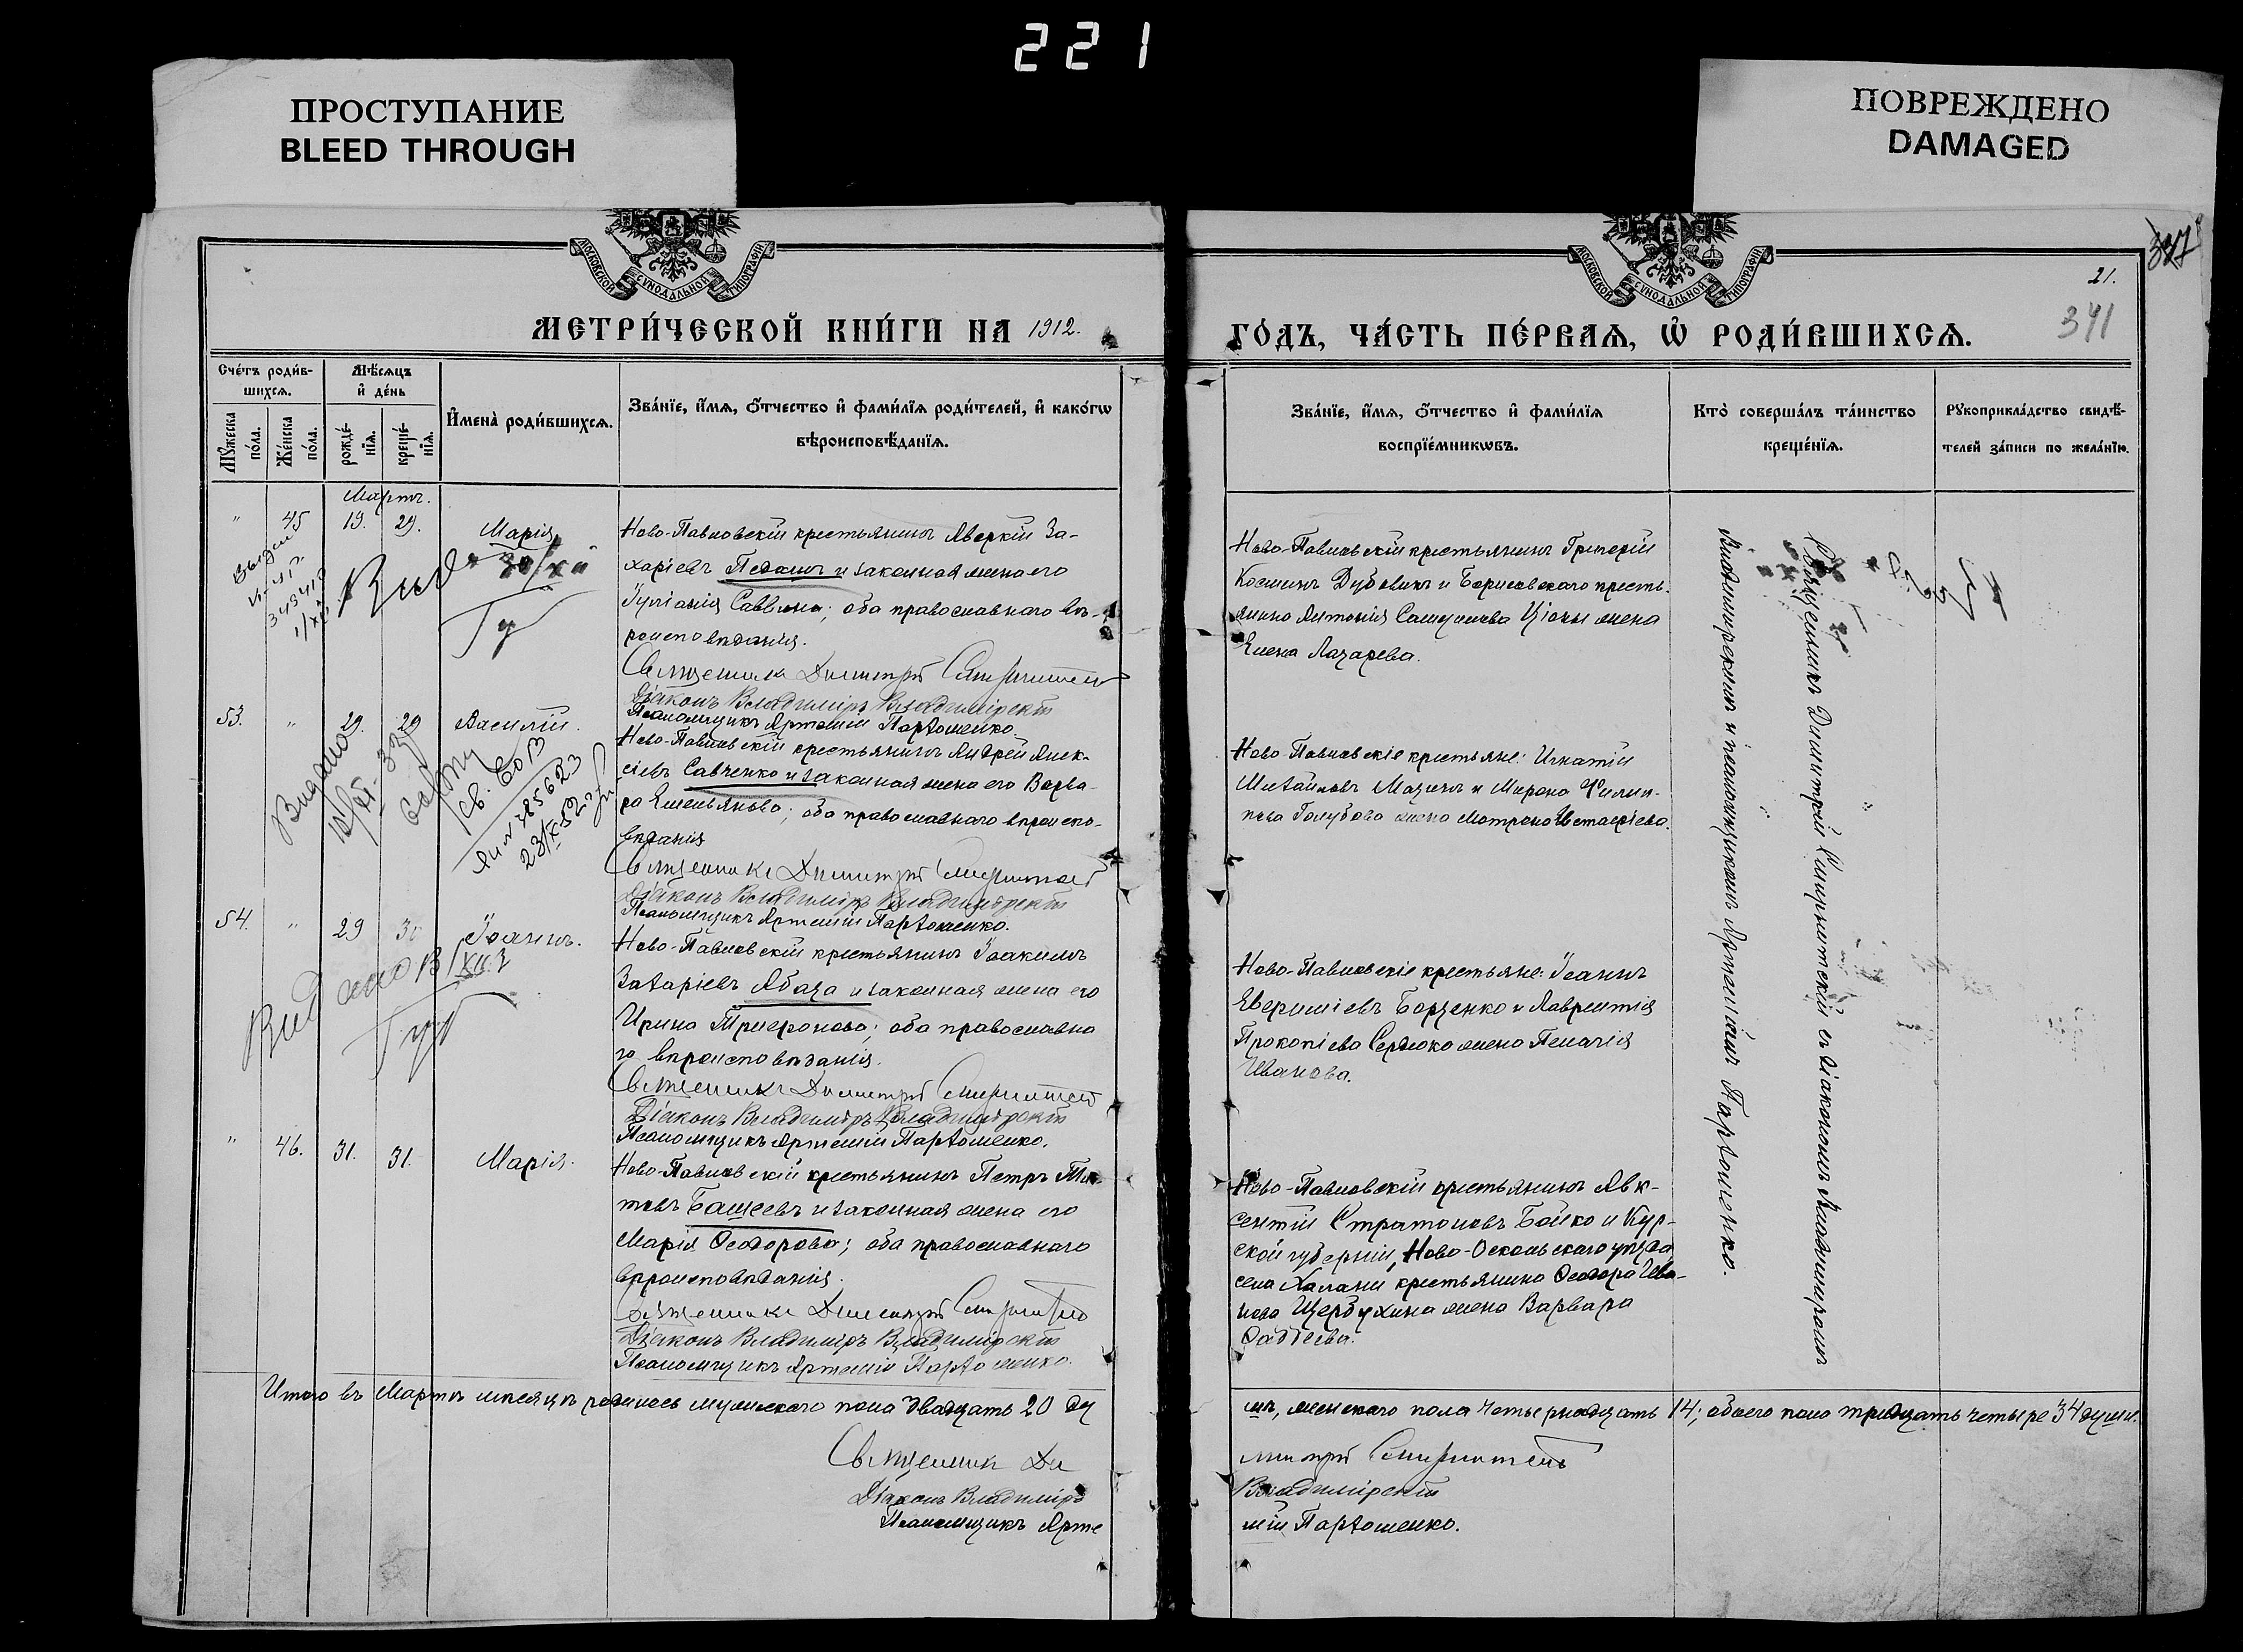 221
ПРОСТУПАНИЕ
BLEED THROUGH
ПОВРЕЖДЕНО
DAMAGED
МОСКОВСКОЙ СѴНОДАЛЬНОЙ ТИПОГРАФІИ
МОСКОВСКОЙ СѴНОДАЛЬНОЙ ТИПОГРАФІИ
21.
341
МЕТРИ́ЧЕСКОЙ КНИ́ГИ НА 1912.
ГО́ДЪ, ЧА́СТЬ ПЕ́РВАѦ, Ѡ҆ РОДИ́ВШИХСѦ.
Сче́тъ роди́в-
шихсѧ.
Мꙋжеска по́ла.
Же́нска по́ла.
Мѣ́сѧцъ
и҆ де́нь
рожде́-
нїѧ.
креще́-
нїѧ.
И҆мена̀ роди́вшихсѧ.
Зва́нїе, и҆́мѧ, ѻ҆́тчество и҆ фами́лїѧ роди́телей, и҆ како́гѡ
вѣроисповѣ́данїѧ.
Зва́нїе, и҆́мѧ, ѻ҆́тчество и҆ фами́лїѧ
воспрїе́мникѡвъ.
Кто̀ соверша́лъ та́инство
креще́нїѧ.
Рꙋкоприкла́дство свидѣ́-
телей за́писи по жела́нїю.
Мартъ.
" 45 19. 29. Марія
Ново-Павловскій крестьянинъ Аверкій За-
харіевъ Педанъ и законная жена его
Іуліанія Саввина; оба православнаго вѣ-
роисповѣданія.
Священникъ Димитрій
Діаконъ Владиміръ Владимірскій
Псаломщикъ Артемій Пархоменко.
Ново-Павловскій крестьянинъ Григорій
Косминъ Дубовикъ и Борисовскаго кресть-
янина Антонія Ціоны жена
Елена Лазарева.
53. " 29. 29 Василій.
Ново-Павловскій крестьянинъ Андрей Алек-
сіевъ Савченко и законная жена его Варва-
ра Емельянова; оба православнаго вѣроиспо-
вѣданія
Священникъ Димитрій
Діаконъ Владиміръ Владимірскій
Псаломщикъ Артемій Пархоменко.
Ново-Павловскіе крестьяне: Игнатій
Михайловъ Мазинъ и Мирона Филип-
пова Голубова жена Матрона
54. " 29 30 Іоаннъ.
Ново-Павловскій крестьянинъ Іоакимъ
Захаріевъ Абаза и законная жена его
Ирина Трифонова; оба православна
го вѣроисповѣданія.
Священникъ Димитрій
Діаконъ Владиміръ Владимірскій
Псаломщикъ Артемій Пархоменко.
Ново-Павловскіе крестьяне: Іоаннъ
Евфиміевъ Борщенко и Лаврентія
Прокопіева Сердюка жена Пелагія
Иванова.
" 46. 31. 31. Марія.
Ново-Павловскій крестьянинъ Петръ Ти-
товъ Бащеевъ и законная жена его
Марія Ѳеодорова; оба православнаго
вѣроисповѣданія.
Священникъ Димитрій
Діаконъ Владиміръ Владимірскій
Псаломщикъ Артемій Пархоменко.
Ново-Павловскій крестьянинъ Авк-
сентій Стратоновъ Бойко и Кур-
ской губерніи, Ново-Оскольскаго уѣзда,
села Халани крестьянина Ѳеодора Ива-
нова Щербухина жена Варвара
Ѳаддеева.
Священникъ Димитрій съ діакономъ Владиміромъ
Владимірскимъ и псаломщикомъ Артеміемъ Пархоменко.
Итого въ Мартѣ мѣсяцѣ родилось мужескаго пола двадцать 20 ду
шъ, женскаго пола четырнадцать 14; обоего пола тридцать четыре 34 души.
Священникъ Ди
митрій
Діаконъ Владиміръ
Владимірскій
Псаломщикъ Арте
мій Пархоменко.